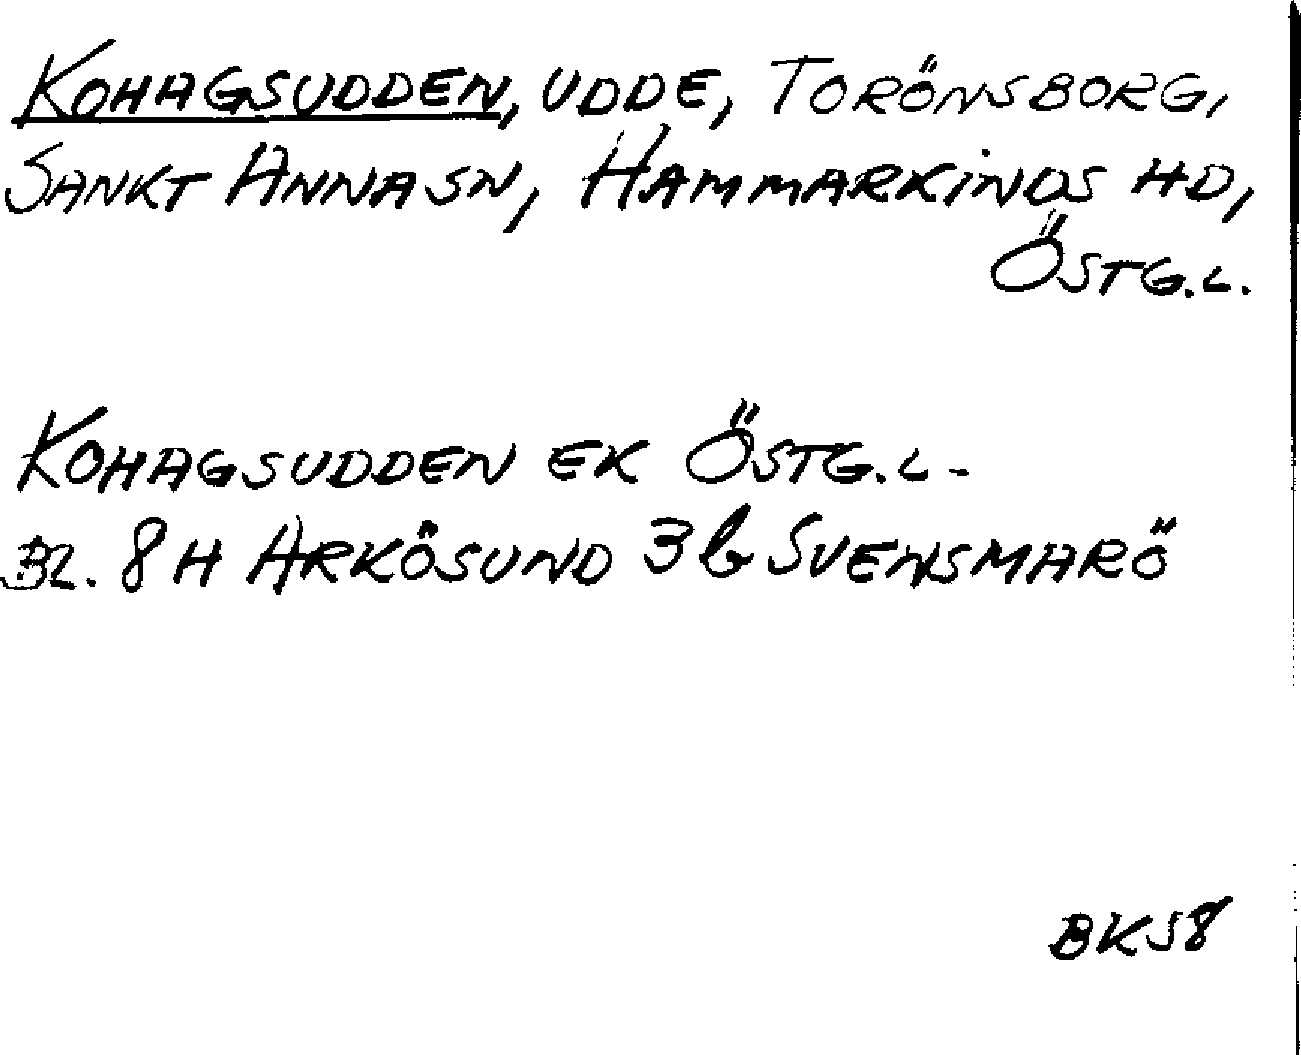 KOHAGSUDDEN, UDDE, TORÖNSBORG,
SANKT ANNA SN, HAMMARKINDS HD,
ÖSTG.L.
KOHAGSUDDEN EK ÖSTG.L-
BL. 8H ARKÖSUND 3b SVENSMARÖ
BK58